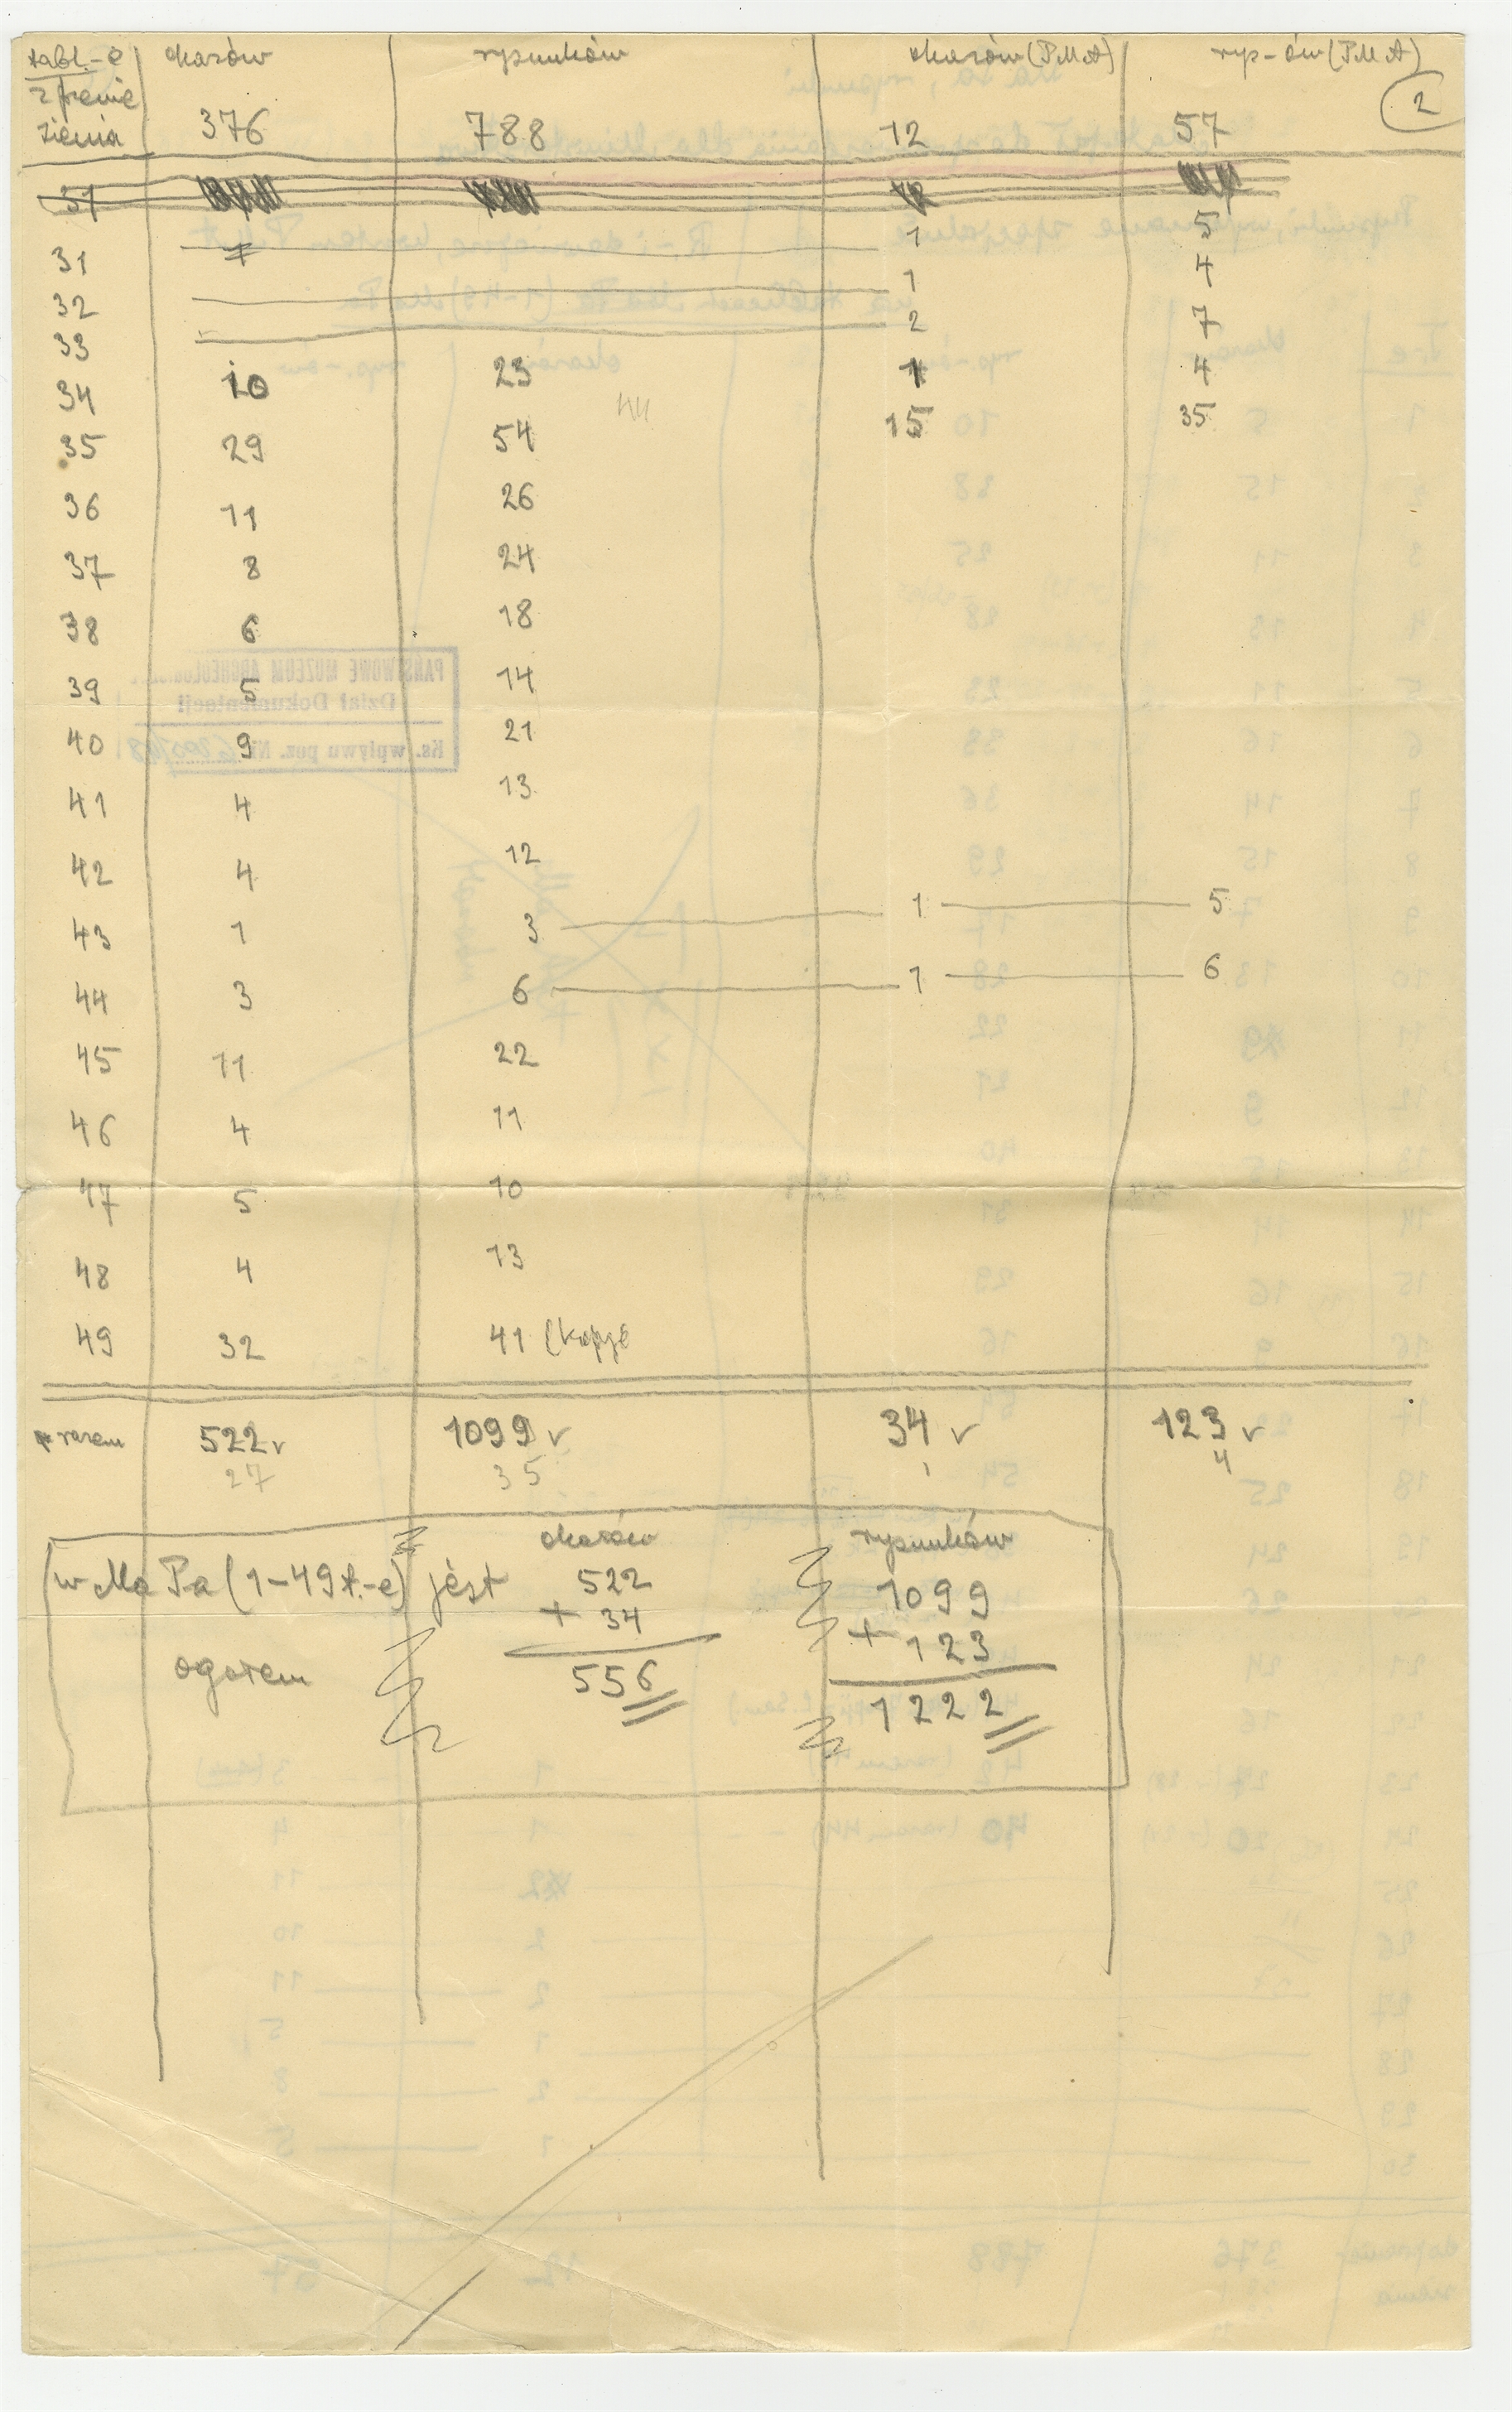 tabl.-e okazów rysunków okazów (PMA) rys-ów (PMA)
z prenie
sienia 376 788 12 57 2
31
31 1 5
32 1 4
33 2 7
34 10 23 1 4
44
35 29 54 15 35
36 11 26
37 8 24
38 6 18
39 5 14
40 9 21
41 4 13
42 4 12
43 1 3 1 5
44 3 6 1 6
45 11 22
46 4 11
47 5 10
48 4 13
49 32 41 (kopje
razem 522 v 1099 v 34 v 123 v
27 35 1 4
okazów rysunków
w Ma Pa (1-49 t.-e) jest 522 1099
+ 34 + 123
ogółem 556 1222